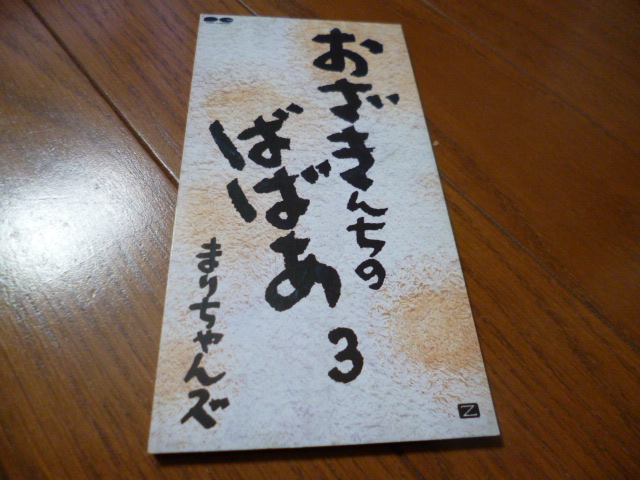 おざきんちの
ばばあ
3
まりちゃんズ
Z